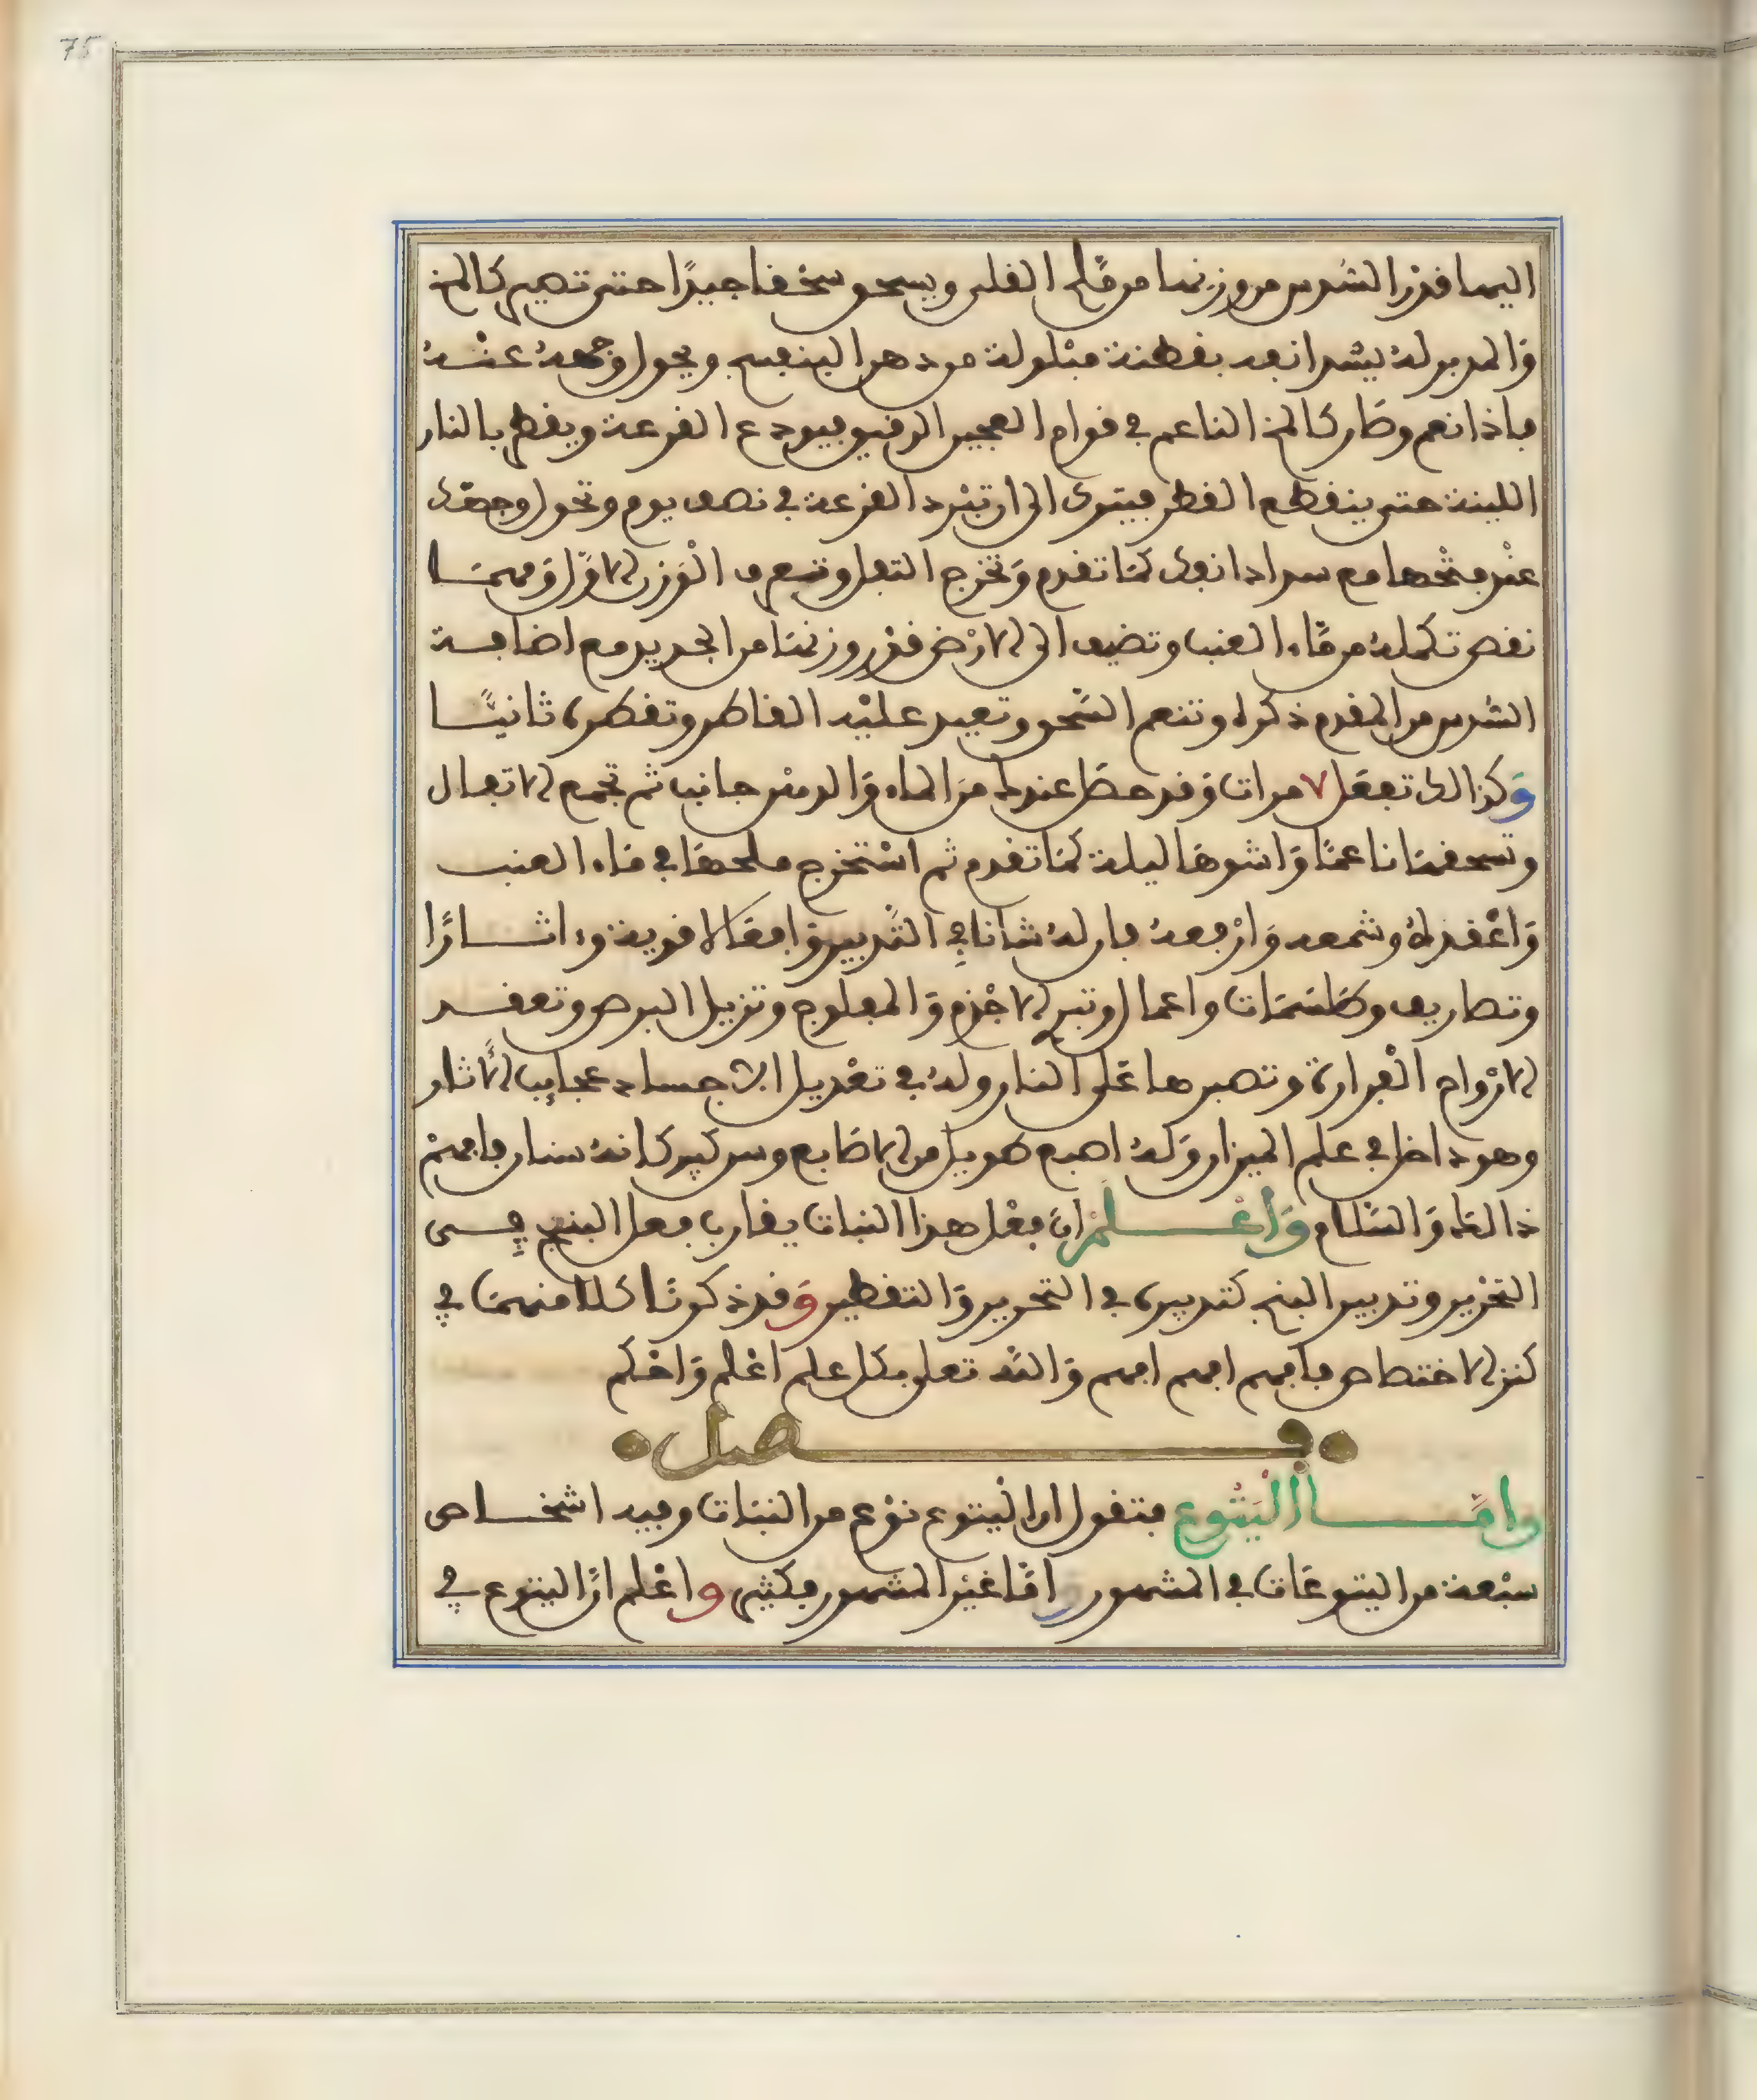 75
اليها قدر السدس من وزنها من ملح القلي ويسحق سحقا جيدا حتى تصير كالمخ
والمدبر له يشد انفه بقطنة مبلولة من دهن البنفسج ويحول وجهه عنه
فاذا نعم وصار كالمخ الناعم في قوام العجين الرقيق فيودع القرعة ويقطر بالنار
اللينة حتى ينقطع القطر فيترك الى ان تبرد القرعة في نصف يوم وتحول وجهك
عند فتحها مع سداد انفك كما تقدم وتخرج الثفل وتعرف الوزن الاول ومهما
نقص تكمله من ماء العنب وتضيف الى الارض قدر وزنها من الجديد مع اضافة
السدس من المقدم ذكره وتنعم السحق وتعيد عليه القاطر وتقطره ثانيا
وكذالك تفعل ٧ مرات وقد حصل عندك من الماء والدهن جانب ثم تجمع الاثفال
وتسحقها ناعما واشوها ليلة كما تقدم ثم استخرج ملحها في ماء العنب
واعقده وشمعه وارفعه فان له شانا في التدبير وافعالا قوية وءاثارا
وتصاريف وطلسمات واعمال وتبرئ الاجذم والمفلوج وتزيل البرص وتعقد
الارواح الفرارة وتصبرها على النار وله في تعديل الاجساد عجايب الاثار
وهو داخل في علم الميزان وله اصبع طويل من الاصابع وسر كبير كانه سنان فافهم
ذالك والسلام واعلم ان فعل هذا النبات يقارب فعل البنج في
التخدير وتدبير البنج كتدبيره في التحرير والتقطير وقد ذكرنا كلا منهما في
كنز الاختصاص فافهم افهم افهم والله تعلى بكل علم اعلم واحكم
فصل
واما اليتوع فنقول ان اليتوع نوع من النبات وفيه اشخاص
سبعة من اليتوعات في المشهور واما غير المشهور فكثير واعلم ان اليتوع في